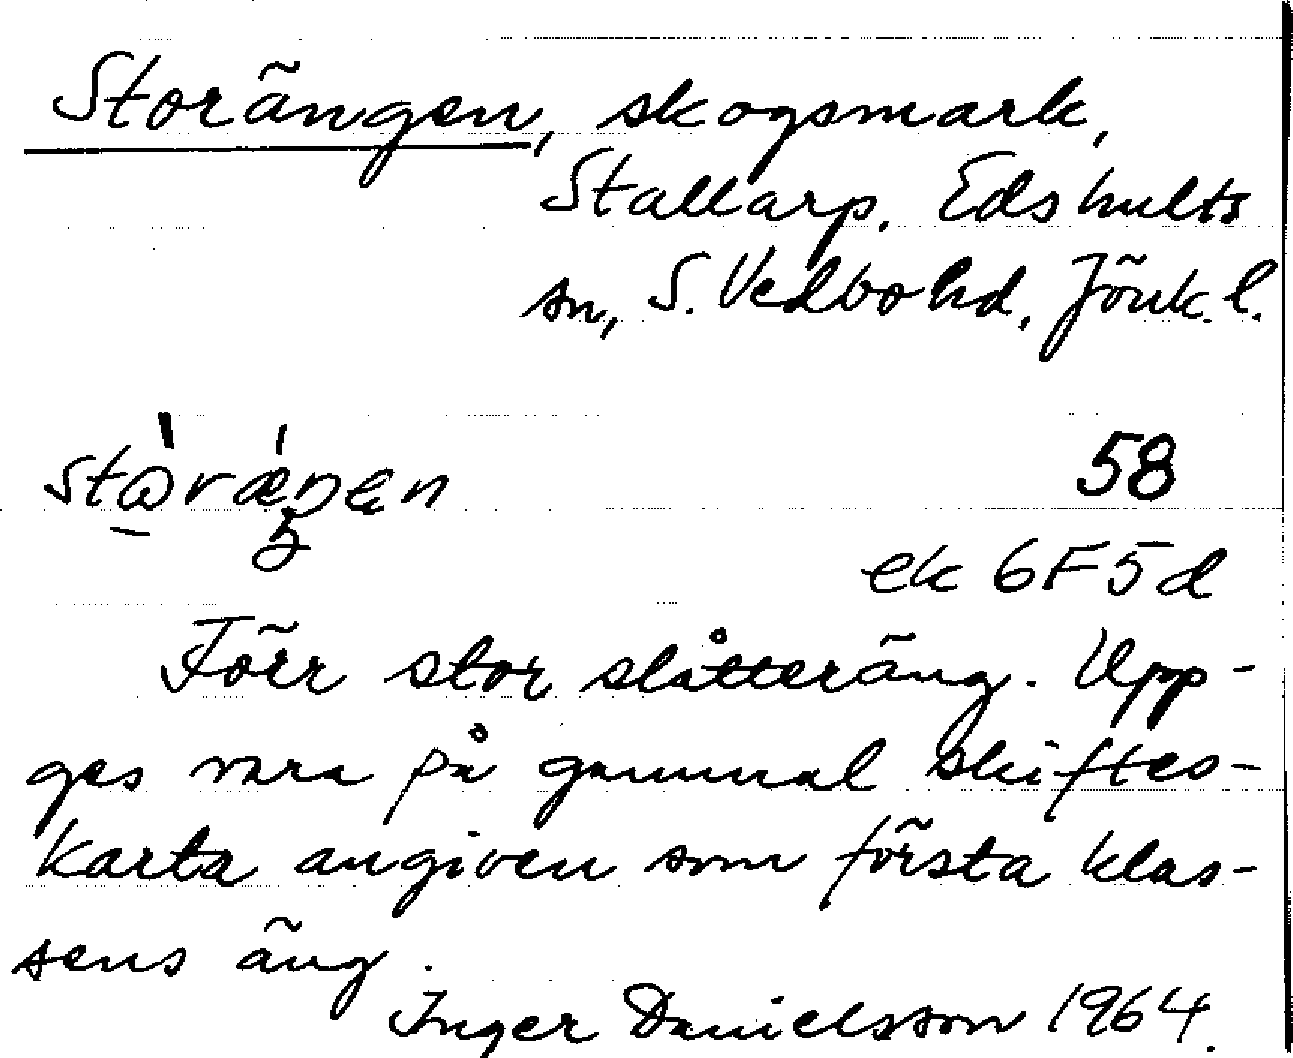 Storängen, skogsmark,
Stallarp, Edshults
sn, S. Vedbo hd, Jönk. l.
58
ek 6F5d
Förr stor slåtteräng. Upp-
ges vara på gammal skiftes-
karta angiven som första klas-
sens äng.
Inger Danielsson 1964.